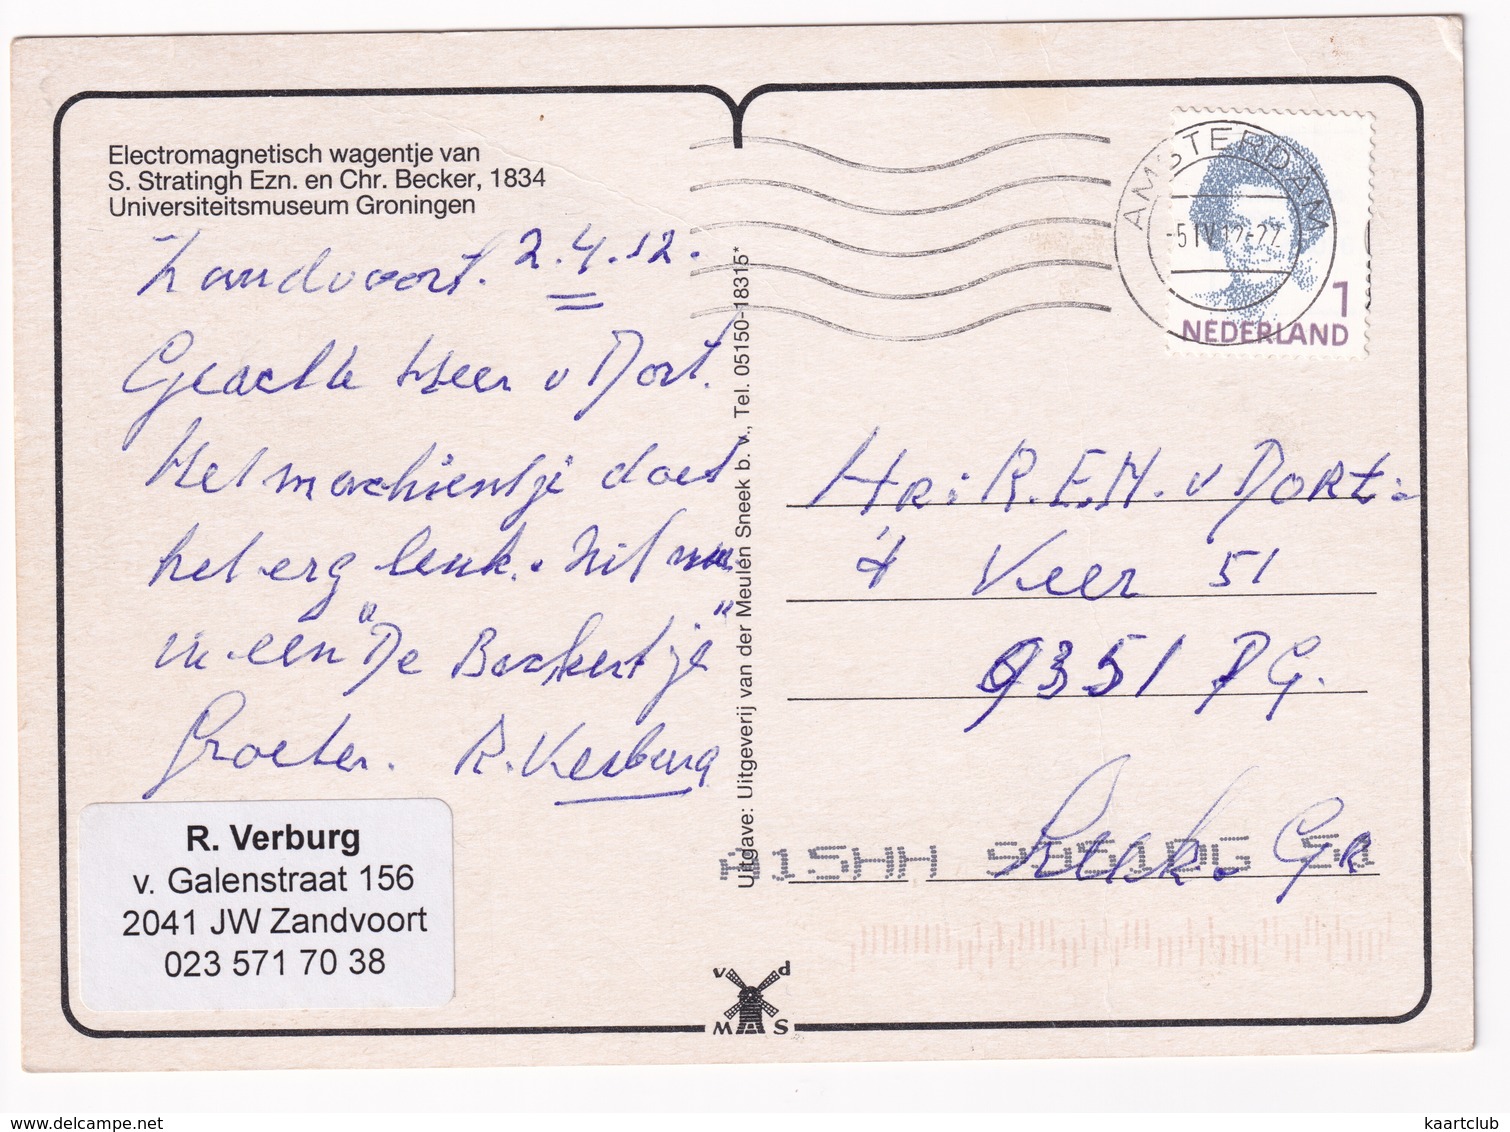 Electromagnetisch wagentje van
S. Stratingh Ezn. en Chr. Becker, 1834
Universiteitsmuseum Groningen
Zandvoort. 2.4.12.
Geachte Heer v Dort.
Het machientje doet
het erg leuk. Zit nu
in een "De Bakkertje"
Groeten. R. Verburg
R. Verburg
v. Galenstraat 156
2041 JW Zandvoort
023 571 70 38
Uitgave: Uitgeverij van der Meulen Sneek b. v., Tel. 05150-18315*
v d
M S
AMSTERDAM
-5IV12-22
1
NEDERLAND
Hr: R.E.M. v Dort:
't Veer 51
9351 PG.
Leek. Gr
9351PG 51
www.delcampe.net
kaartclub